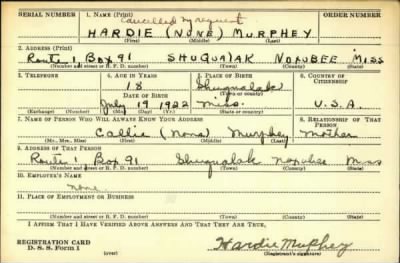 SERIAL NUMBER 1. NAME (Print) ORDER NUMBER
Cancelled by request
HARDIE (NONE) MURPHEY
(First) (Middle) (Last)
2. ADDRESS (Print)
Route 1, Box 91 SHUQUALAK NOXUBEE MISS
(Number and street or R. F. D. number) (Town) (County) (State)
3. TELEPHONE 4. AGE IN YEARS 5. PLACE OF BIRTH 6. COUNTRY OF CITIZENSHIP
18 Shuqualak
DATE OF BIRTH (Town or county)
July 19 1922 Miss. U.S.A.
(Exchange) (Number) (Mo.) (Day) (Yr.) (State or country)
7. NAME OF PERSON WHO WILL ALWAYS KNOW YOUR ADDRESS 8. RELATIONSHIP OF THAT PERSON
Callie (None) Murphey Mother
(Mr., Mrs., Miss) (First) (Middle) (Last)
9. ADDRESS OF THAT PERSON
Route 1, Box 91 Shuqualak Noxubee Miss
(Number and street or R. F. D. number) (Town) (County) (State)
10. EMPLOYER'S NAME
none
11. PLACE OF EMPLOYMENT OR BUSINESS
(Number and street or R. F. D. number) (Town) (County) (State)
I AFFIRM THAT I HAVE VERIFIED ABOVE ANSWERS AND THAT THEY ARE TRUE.
REGISTRATION CARD
D. S. S. Form 1 (over) Hardie Murphey
(Registrant's signature)